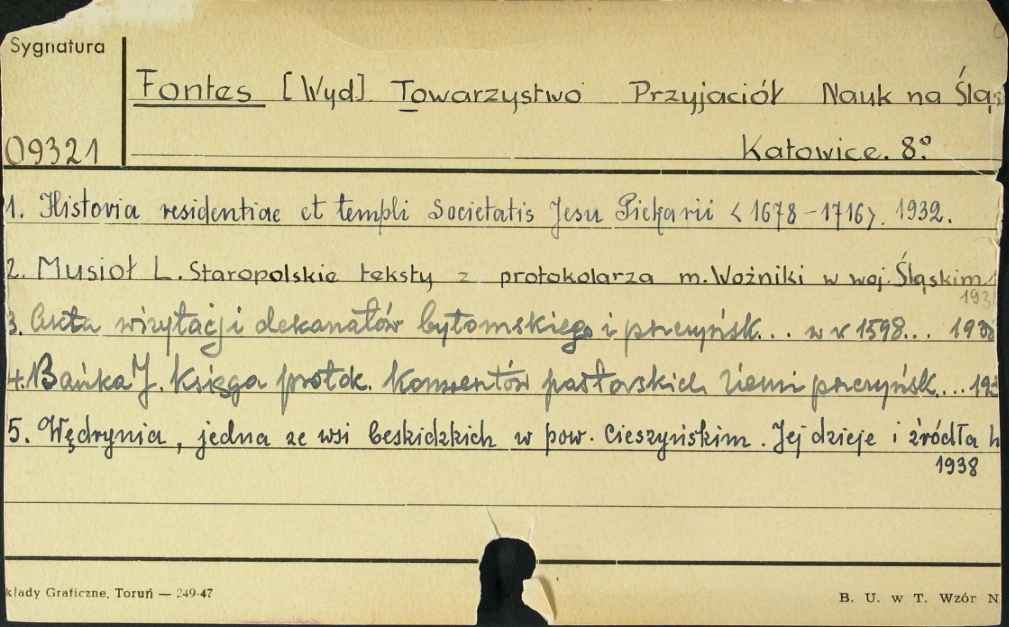 Sygnatura
Fontes [Wyd] Towarzystwo Przyjaciół Nauk na Śląs
09321
Katowice. 8°
1. Historia residentiae et templi Societatis Jesu Piekarii <1678-1716>. 1932.
2. Musioł L. Staropolskie teksty z protokolarza m. Woźniki w woj. Śląskim
193
3. Akta wizytacji dekanatów bytomskiego i pszczyńsk... w r 1598... 1938
4. Bańka J. Księga protok. konwentów pastorskich ziemi pszczyńsk... 193
5. Wędrynia, jedna ze wsi beskidzkich w pow. Cieszyńskim. Jej dzieje i źródła h
1938
kłady Graficzne, Toruń — 249-47
B. U. w T. Wzór N